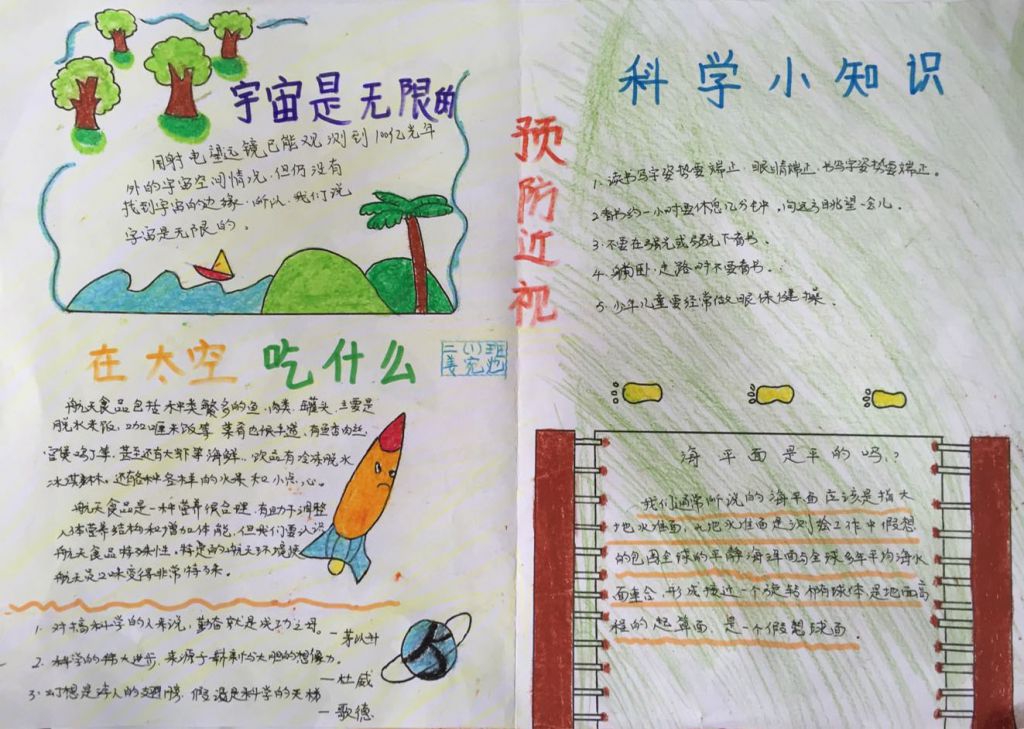 宇宙是无限的
用射电望远镜已能观测到100亿光年
外的宇宙空间情况,但仍没有
找到宇宙的边缘,所以,我们说
宇宙是无限的。
在太空吃什么
二(1)班
姜 炮
航天食品包括种类繁多的鱼、肉类、罐头,主要是
脱水米饭,咖喱米饭等,菜肴也很丰盛,有鱼香肉丝,
宫保鸡丁等,甚至还有大虾等海鲜。饮品有冷冻脱水
冰淇淋。还有各种各样的水果和小点心。
航天食品是一种营养很合理,有助于调整
人体营养结构和增加体能,但我们要认识
航天食品特殊性。特定的航天环境使
航天员口味变得非常特殊。
1. 对搞科学的人来说,勤奋就是成功之母。
—茅以升
2. 科学的伟大进步,来源于崭新与大胆的想像力。
—杜威
3. 幻想是诗人的翅膀,假设是科学的天梯
—歌德
科学小知识
预防近视
1. 读书写字姿势要端正,眼睛端正,书写字姿势要端正。
2. 看书约一小时要休息几分钟,向远方眺望一会儿。
3. 不要在强光或弱光下看书。
4. 躺卧、走路时不要看书。
5. 少年儿童要经常做眼保健操。
海平面是平的吗?
我们通常所说的海平面应该是指大
地水准面,大地水准面是测绘工作中假想
的包围全球的平静海洋面与全球多年平均海水
面重合,形成接近一个旋转椭球体,是地面高
程的起算面,是一个假想球面。